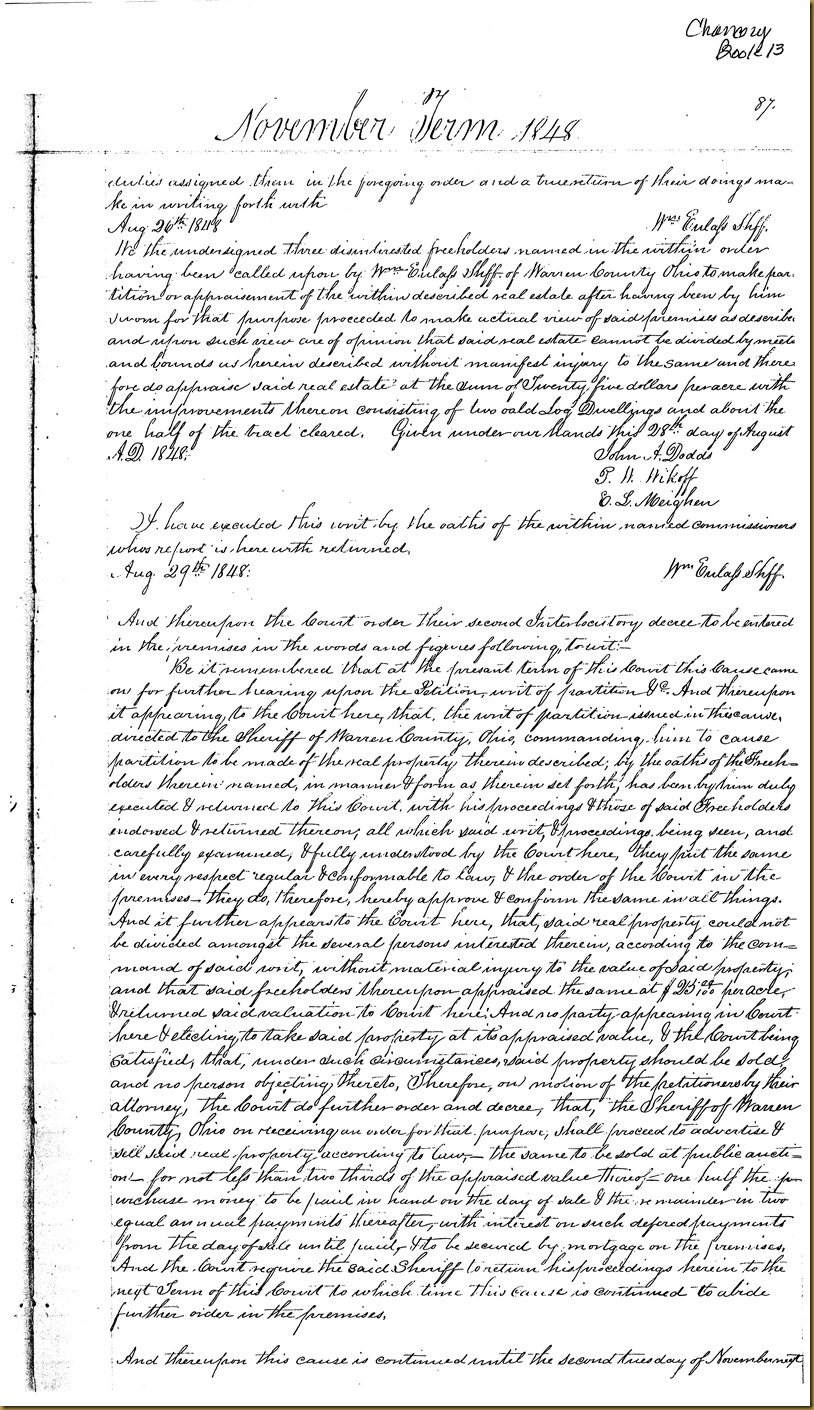 Chancery
Book 13
87
87.
November Term 1848
duties assigned them in the foregoing order and a true return of their doings ma-
ke in writing forth with
Aug 26th 1848 Wm Eulass Shff.
We the undersigned three disinterested freeholders named in the within order
having been called upon by Wm Eulass Shff. of Warren County Ohio to make par-
tition or appraisement of the within described real estate after having been by him
sworn for that purpose proceeded to make actual view of said premises as describe
and upon such view are of opinion that said real estate cannot be divided by meets
and bounds as herein described without manifest injury to the same and there
fore do appraise said real estate at the sum of Twenty five dollars per acre with
the improvements thereon consisting of two oald Log Dwellings and about the
one half of the tract cleared. Given under our hands this 28th day of August
A.D. 1848. John A. Dodds
T. W. Wikoff
E. L. Meighen
I have executed this writ by the oaths of the within named commissioners
whos report is here with returned.
Aug 29th 1848. Wm Eulass Shff.
And thereupon the Court order their second Interlocitory decree to be entered
in the premises in the words and figures following, to wit:—
Be it remembered that at the present term of this Court this Cause came
on for further hearing upon the Petition, writ of partition &c. And thereupon
it appearing, to the Court here, that, the writ of partition issued in this cause,
directed to the Sheriff of Warren County, Ohio, commanding him to cause
partition to be made of the real property therein described, by the oaths of the Freeh=
olders therein named, in manner & form as therein set forth, has been by him duly
executed & returned to this Court, with his proceedings & those of said Freeholders
endowed & returned thereon, all which said writ, & proceedings being seen, and
carefully examined, & fully understood by the Court here, they put the same
in every respect regular & conformable to law, & the order of the Court in the
premises— they do, therefore, hereby approve & confirm the same in all things.
And it further appears to the Court here, that, said real property could not
be divided amongst the several persons interested therein, according to the com=
mand of said writ, without material injury to the value of said property,
and that said freeholders thereupon appraised the same at $25 00/100 per acre,
& returned said valuation to Court here: And no party appearing in Court
here & electing to take said property at its appraised value, & the Court being
satisfied, that, under such circumstances, said property should be sold,
and no person objecting thereto, Therefore, on motion of the petitioners by their
attorney, the Court do further order and decree, that, the Sheriff of Warren
County, Ohio on receiving an order for that purpose, shall proceed to advertise &
sell said real property according to law,— the same to be sold at public aucti=
on— for not less than two thirds of the appraised value thereof— one half the p
urchase money to be paid in hand on the day of sale & the remainder in two
equal annual payments thereafter, with interest on such defered payments
from the day of sale until paid, & to be secured by mortgage on the premises,
And the Court require the said Sheriff to return his proceedings herein to the
next Term of this Court to which time this cause is continued to abide
further order in the premises.
And thereupon this cause is continued until the second tuesday of November next